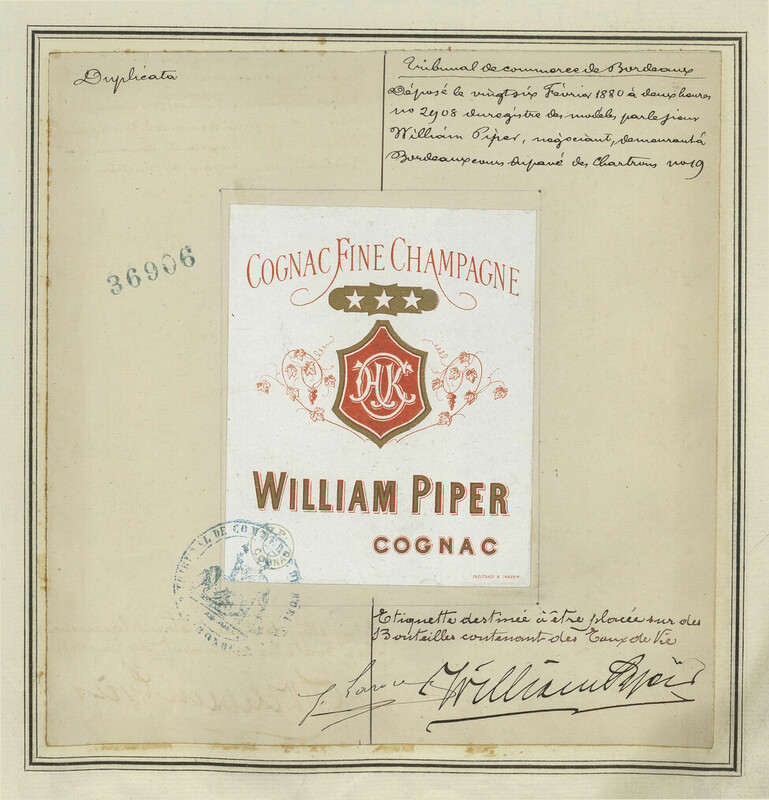 Duplicata
Tribunal de commerce de Bordeaux
Déposé le vingt six Février 1880 à deux heures
no 2908 du registre des modèles par le sieur
William Piper, négociant, demeurant à
Bordeaux cours du pavé des Chartrons no 19
36906
COGNAC FINE CHAMPAGNE
WILLIAM PIPER
COGNAC
TRIBUNAL DE COMM
BORDEAUX
COGNAC
Etiquette destinée à être placée sur des
Bouteilles contenant des Eaux de Vie
William Piper